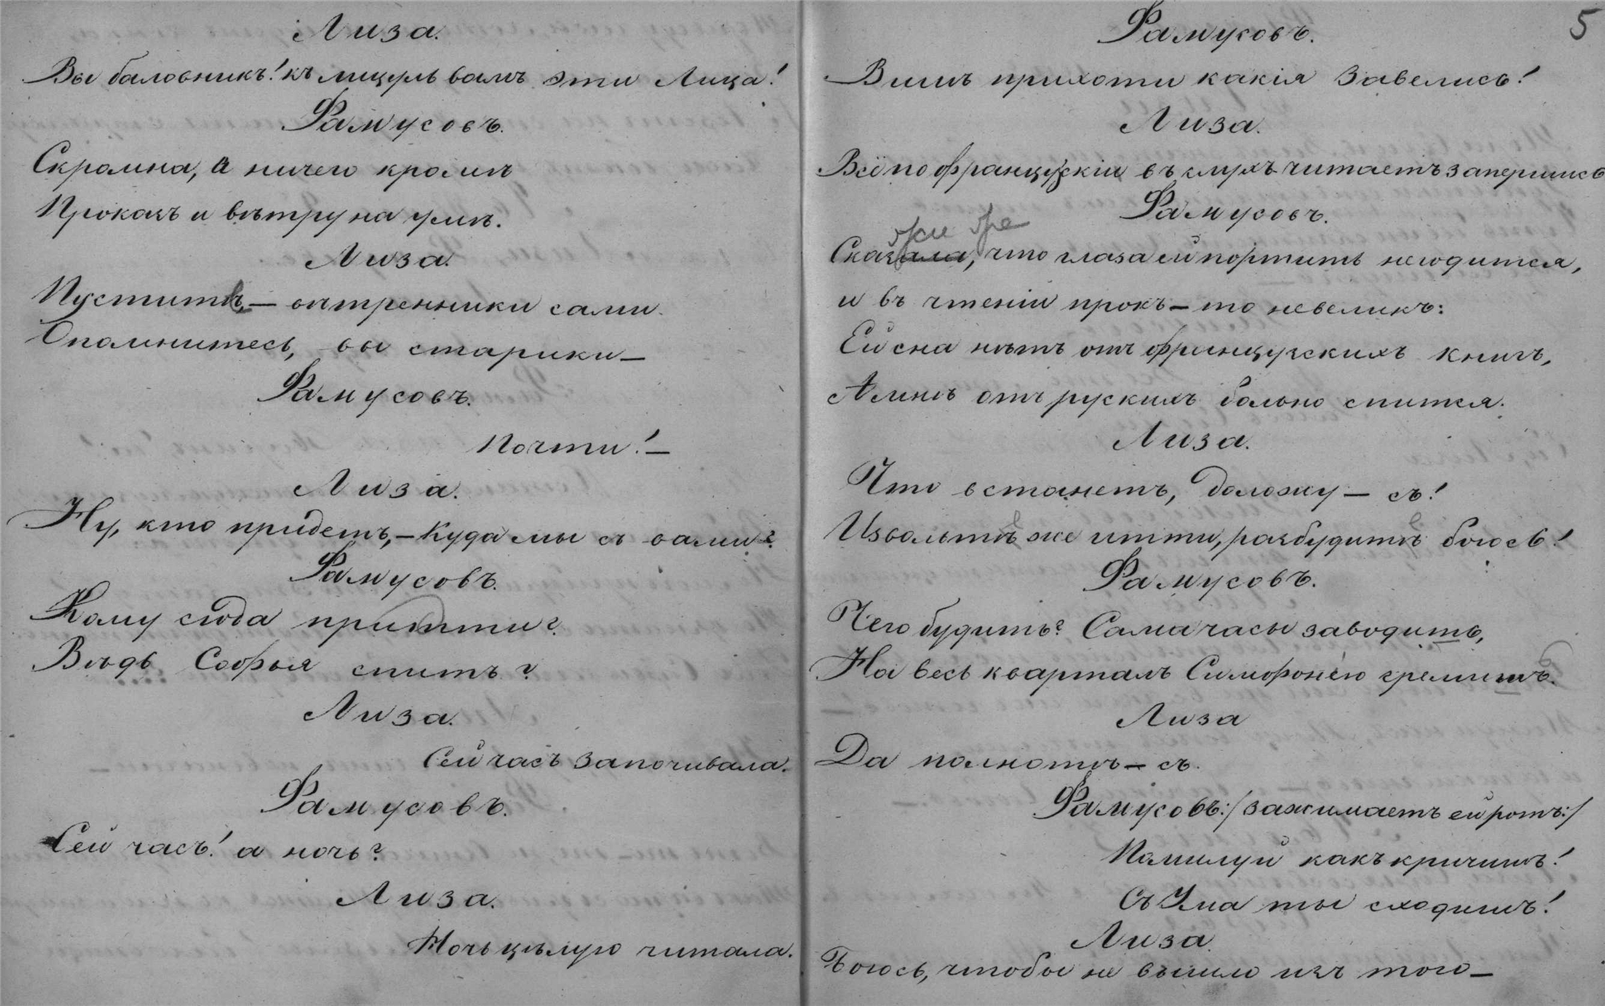 Лиза.
Вы баловникъ! къ лицуль вамъ эти Лица!
Фамусовъ.
Скромна, а ничего кромѣ
Проказъ и вѣтру на умѣ.
Лиза.
Пустите, — вѣтренники сами.
Опомнитесь, вы старики —
Фамусовъ.
Почти! —
Лиза.
Ну, кто придетъ, — куда мы съ вами?
Фамусовъ.
Кому сюда придтти?
Вѣдь Софья спитъ?
Лиза.
Сей часъ започивала.
Фамусовъ.
Сей часъ! а ночь?
Лиза.
Ночь цѣлую читала.
5
Фамусовъ.
Вишь прихоти какія завелись!
Лиза.
Всё по французскіи въ слухъ читаетъ запершись
Фамусовъ.
жи же
Сказала, что глаза ей портить не годится,
и въ чтеніи прокъ — то не великъ:
Ей сна нѣтъ отъ французскихъ книгъ,
А мнѣ отъ рускихъ больно спится.
Лиза.
Что встанетъ, доложу — съ!
Извольте же итти, разбудите боюсь!
Фамусовъ.
Чего будить? Сама часы заводить,
На весь кварталъ Симфонію гремишь.
Лиза
Да полноте — съ.
Фамусовъ: /зажимаетъ ей ротъ:/
Помилуй какъ кричишь!
Съ Ума ты сходишь!
Лиза.
Боюсь, чтобы не вышло изъ того —